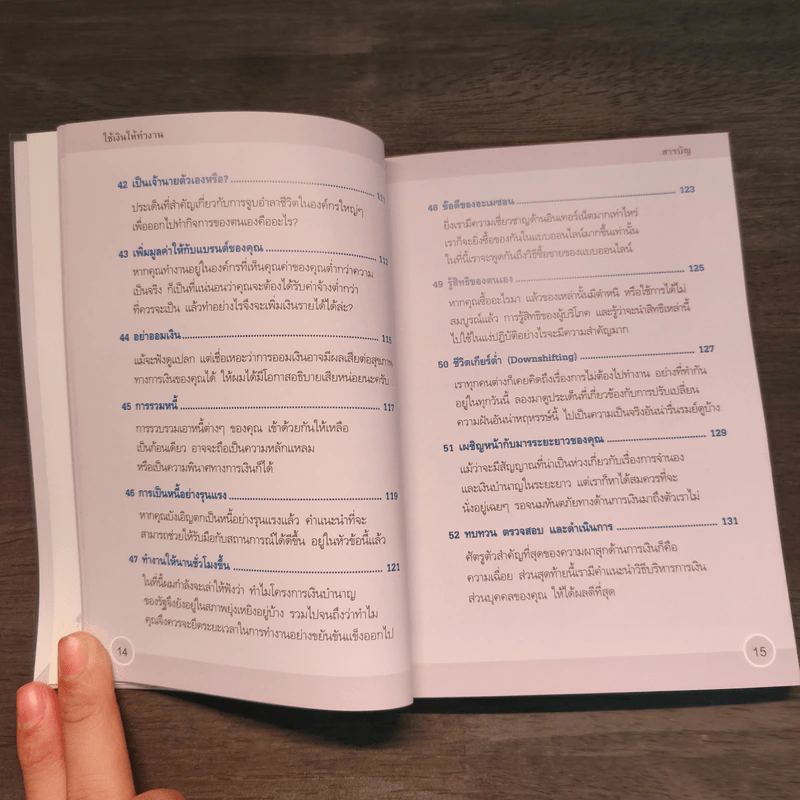 ใช้เงินให้ทำงาน
42 เป็นเจ้านายตัวเองหรือ? ........ 111
ประเด็นที่สำคัญเกี่ยวกับการจูบอำลาชีวิตในองค์กรใหญ่ๆ
เพื่อออกไปทำกิจการของตนเองคืออะไร?
43 เพิ่มมูลค่าให้กับแบรนด์ของคุณ ........ 113
หากคุณทำงานอยู่ในองค์กรที่เห็นคุณค่าของคุณต่ำกว่าความ
เป็นจริง ก็เป็นที่แน่นอนว่าคุณจะต้องได้รับค่าจ้างต่ำกว่า
ที่ควรจะเป็น แล้วทำอย่างไรจึงจะเพิ่มเงินรายได้ได้ล่ะ?
44 อย่าออมเงิน ........ 115
แม้จะฟังดูแปลก แต่เชื่อเหอะว่าการออมเงินอาจมีผลเสียต่อสุขภาพ
ทางการเงินของคุณได้ ให้ผมได้มีโอกาสอธิบายเสียหน่อยนะครับ
45 การรวมหนี้ ........ 117
การรวบรวมเอาหนี้ต่างๆ ของคุณ เข้าด้วยกันให้เหลือ
เป็นก้อนเดียว อาจจะถือเป็นความหลักแหลม
หรือเป็นความพินาศทางการเงินก็ได้
46 การเป็นหนี้อย่างรุนแรง ........ 119
หากคุณบังเอิญตกเป็นหนี้อย่างรุนแรงแล้ว คำแนะนำที่จะ
สามารถช่วยให้รับมือกับสถานการณ์ได้ดีขึ้น อยู่ในหัวข้อนี้แล้ว
47 ทำงานให้นานชั่วโมงขึ้น ........ 121
ในที่นี้ผมกำลังจะเล่าให้ฟังว่า ทำไมโครงการเงินบำนาญ
ของรัฐจึงยังอยู่ในสภาพยุ่งเหยิงอยู่บ้าง รวมไปจนถึงว่าทำไม
คุณจึงควรจะยืดระยะเวลาในการทำงานอย่างขยันขันแข็งออกไป
14
สารบัญ
48 ข้อดีของอะเมซอน ........ 123
ยิ่งเรามีความเชี่ยวชาญด้านอินเทอร์เน็ตมากเท่าไหร่
เราก็จะยิ่งซื้อของกันในแบบออนไลน์มากขึ้นเท่านั้น
ในที่นี้เราจะพูดกันถึงวิธีซื้อขายของแบบออนไลน์
49 รู้สิทธิของตนเอง ........ 125
หากคุณซื้ออะไรมา แล้วของเหล่านั้นมีตำหนิ หรือใช้การได้ไม่
สมบูรณ์แล้ว การรู้สิทธิของผู้บริโภค และรู้ว่าจะนำสิทธิเหล่านี้
ไปใช้ในแง่ปฏิบัติอย่างไรจะมีความสำคัญมาก
50 ชีวิตเกียร์ต่ำ (Downshifting) ........ 127
เราทุกคนต่างก็เคยคิดถึงเรื่องการไม่ต้องไปทำงาน อย่างที่ทำกัน
อยู่ในทุกวันนี้ ลองมาดูประเด็นที่เกี่ยวข้องกับการปรับเปลี่ยน
ความฝันอันน่าหฤหรรษ์นี้ ไปเป็นความเป็นจริงอันน่ารื่นรมย์ดูบ้าง
51 เผชิญหน้ากับมารระยะยาวของคุณ ........ 129
แม้ว่าจะมีสัญญาณที่น่าเป็นห่วงเกี่ยวกับเรื่องการจำนอง
และเงินบำนาญในระยะยาว แต่เราก็หาได้สมควรที่จะ
นั่งอยู่เฉยๆ รอจนมหันตภัยทางด้านการเงินมาถึงตัวเราไม่
52 ทบทวน ตรวจสอบ และดำเนินการ ........ 131
ศัตรูตัวสำคัญที่สุดของความผาสุกด้านการเงินก็คือ
ความเฉื่อย ส่วนสุดท้ายนี้เรามีคำแนะนำวิธีบริหารการเงิน
ส่วนบุคคลของคุณ ให้ได้ผลดีที่สุด
15